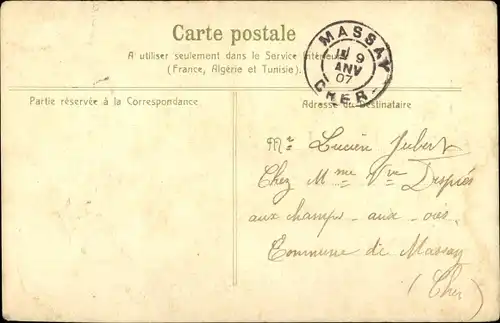 Carte postale
A utiliser seulement dans le Service Intérieur
(France, Algérie et Tunisie).
MASSAY
9
JANV
07
CHER
Partie réservée à la Correspondance.
Adresse du Destinataire
Mr Lucien Jubert
Chez Mme Vve Després
aux champs-aux-oies
Commune de Massay
(Cher)